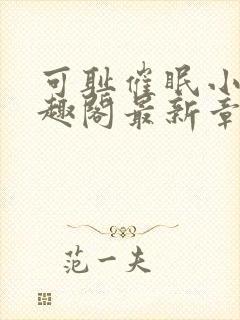 可耻催眠小
趣阁最新章
范一夫